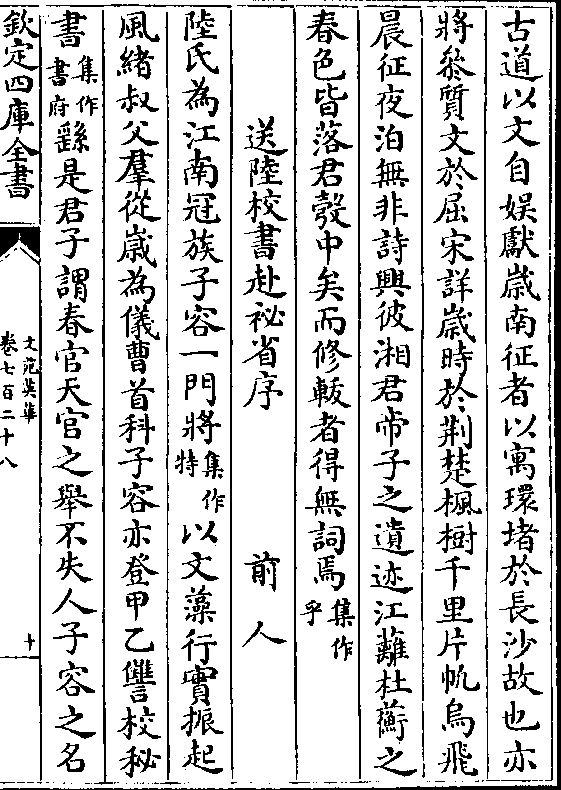 古道以文自娯獻嵗南征者以寓環堵於長沙故也亦
將叅質文於屈宋詳嵗時於荆楚楓樹千里片帆鳥飛
晨征夜泊無非詩興彼湘君帝子之遺迹江蘺杜蘅之
春色皆落君彀中矣而修報者得無詞焉集作乎
送陸校書赴祕省序 前人
陸氏為江南冠族子容一門將集作特以文藻行實振起
風緒叔父羣從嵗為儀曹首科子容亦登甲乙讐校秘
書集作書府繇是君子謂春官天官之舉不失人子容之名
欽定四庫全書
文苑英華
卷七百二十八
十